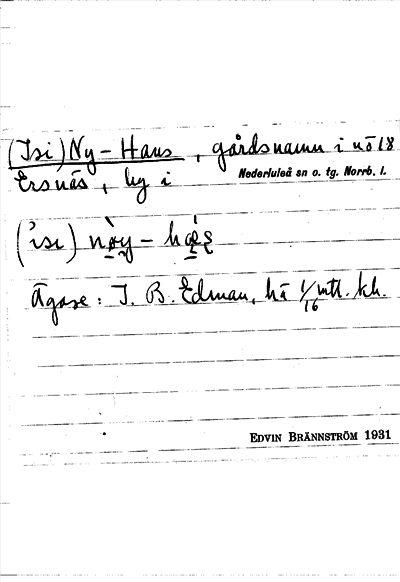 (Isi) Ny-Hans, gårdsnamn i nö 18
Ersnäs, by i Nederluleå sn o. tg. Norrb. l.
Ägare: J. B. Edman, hä 1/16 mtl. kh.
EDVIN BRÄNNSTRÖM 1931